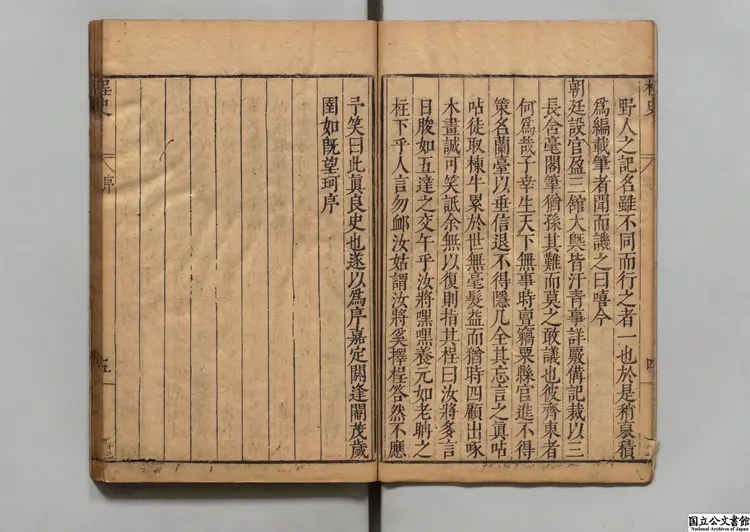 桯史
四
野人之記名雖不同而行之者一也於是稍裒積
爲編載筆者聞而譏之曰嘻今
朝廷設官盈三館大槩皆汗靑事詳嚴備記裁以三
長含毫閣筆猶孫其難而莫之敢議也彼齊東者
何爲哉子幸生天下無事時竊粟縣官進不得
策名蘭臺以垂信退不得隱几全其忘言之眞呫
呫徒取棟牛累於世無毫髮益而猶時四顧出啄
木畫誠可笑詆余無以復則指其桯曰汝將多言
日朘如五達之交午乎汝將嘿嘿養元如老聃之
柱下乎人言勿䘏汝姑謂汝將奚擇桯嗒然不應
予笑曰此眞良史也遂以爲序嘉定閼逢閹茂歲
圉如旣望珂序
桯史
序
五
国立公文書館
National Archives of Japan